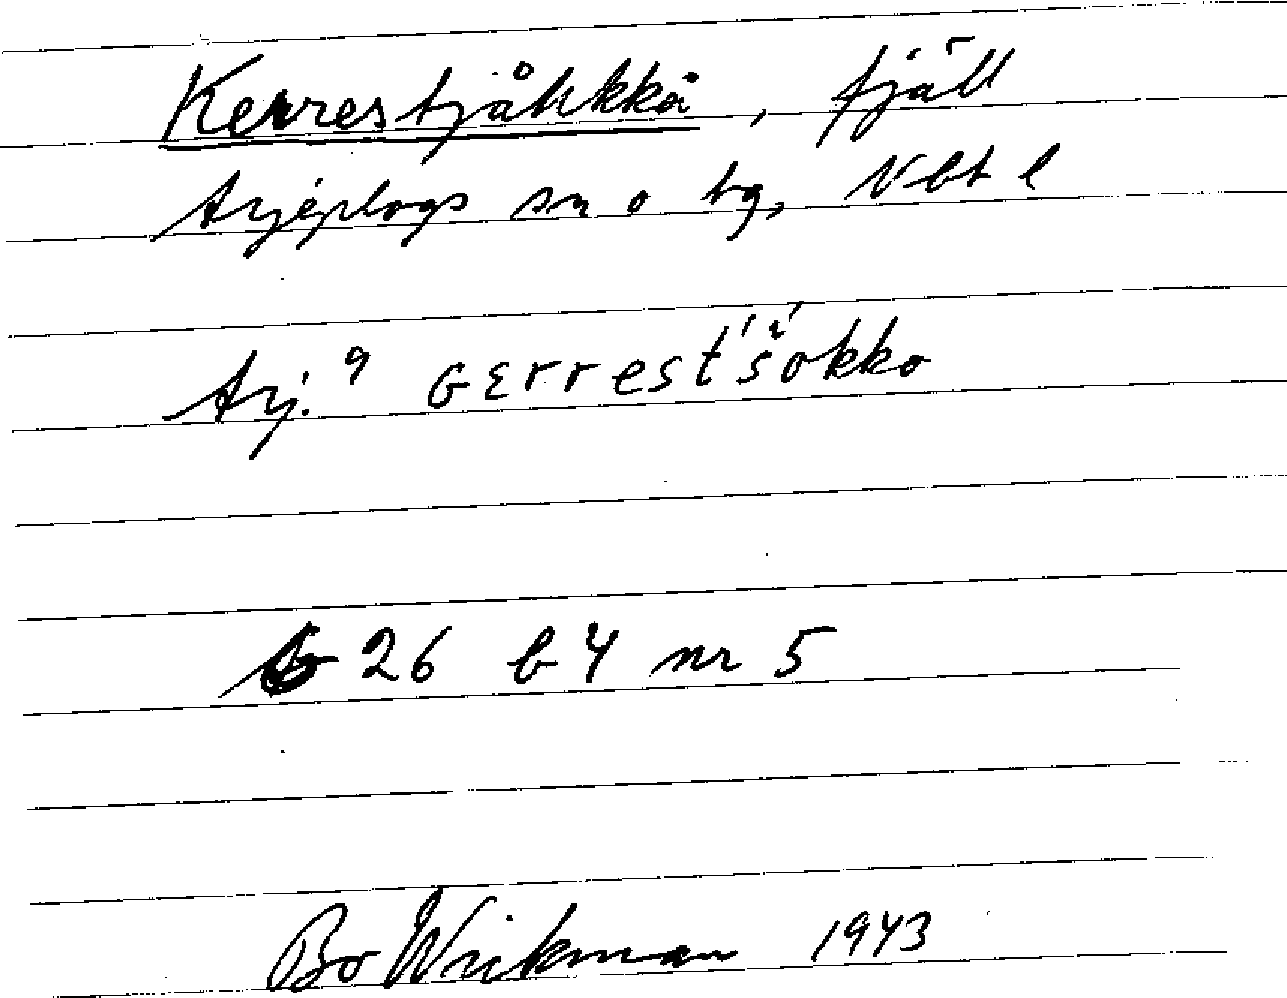 Kerrestjåhkkå, fjäll
Arjeplogs sn o tg, Nbt l
Arj. 9 GƐrrest'š́okko
26 b 4 nr 5
Bo Wickman 1943